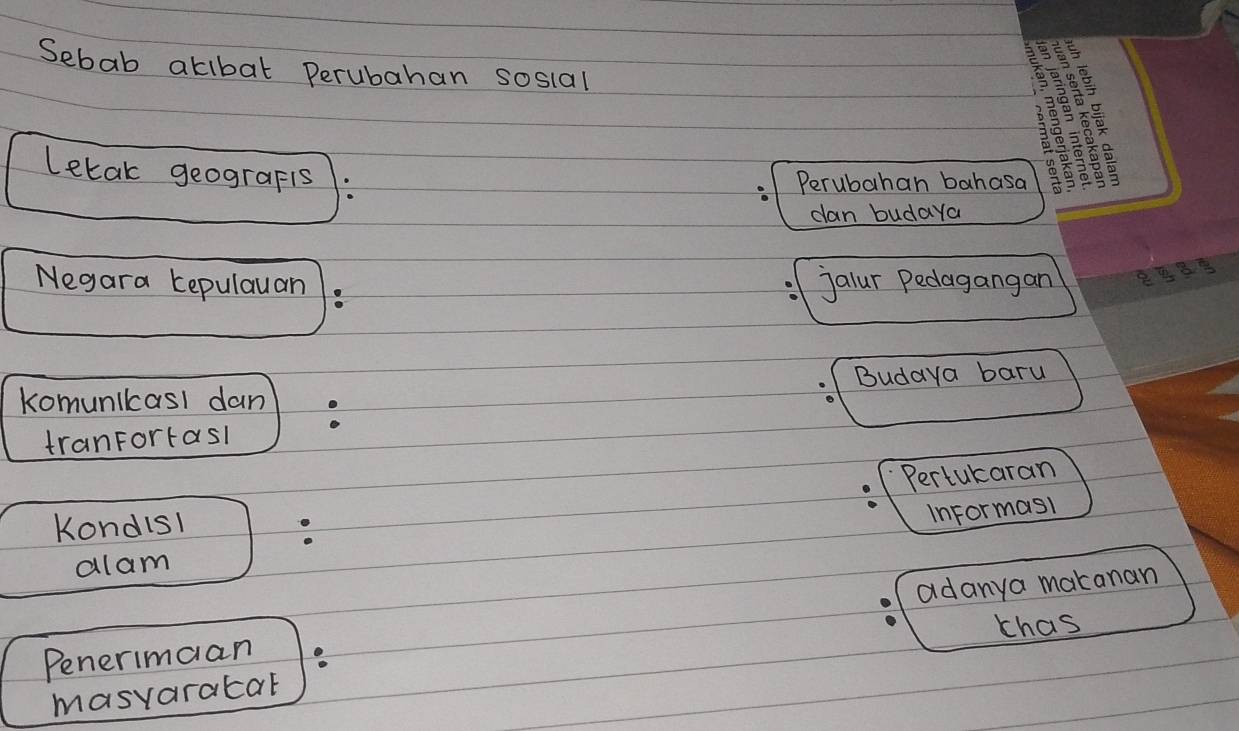 Sebab akibat Perubahan sosial
Letak geografis :
: Perubahan bahasa
dan budaya
Negara kepulauan :
: jalur Pedagangan
Komunikasi dan :
tranfortasi
: Budaya baru
Kondisi :
alam
: Pertukaran
informasi
Penerimaan :
masyarakat
: adanya makanan
khas
uh lebih bijak dalam
nuan serta kecakapan
jan jaringan internet.
mukan, mengerjakan,
cermat serta